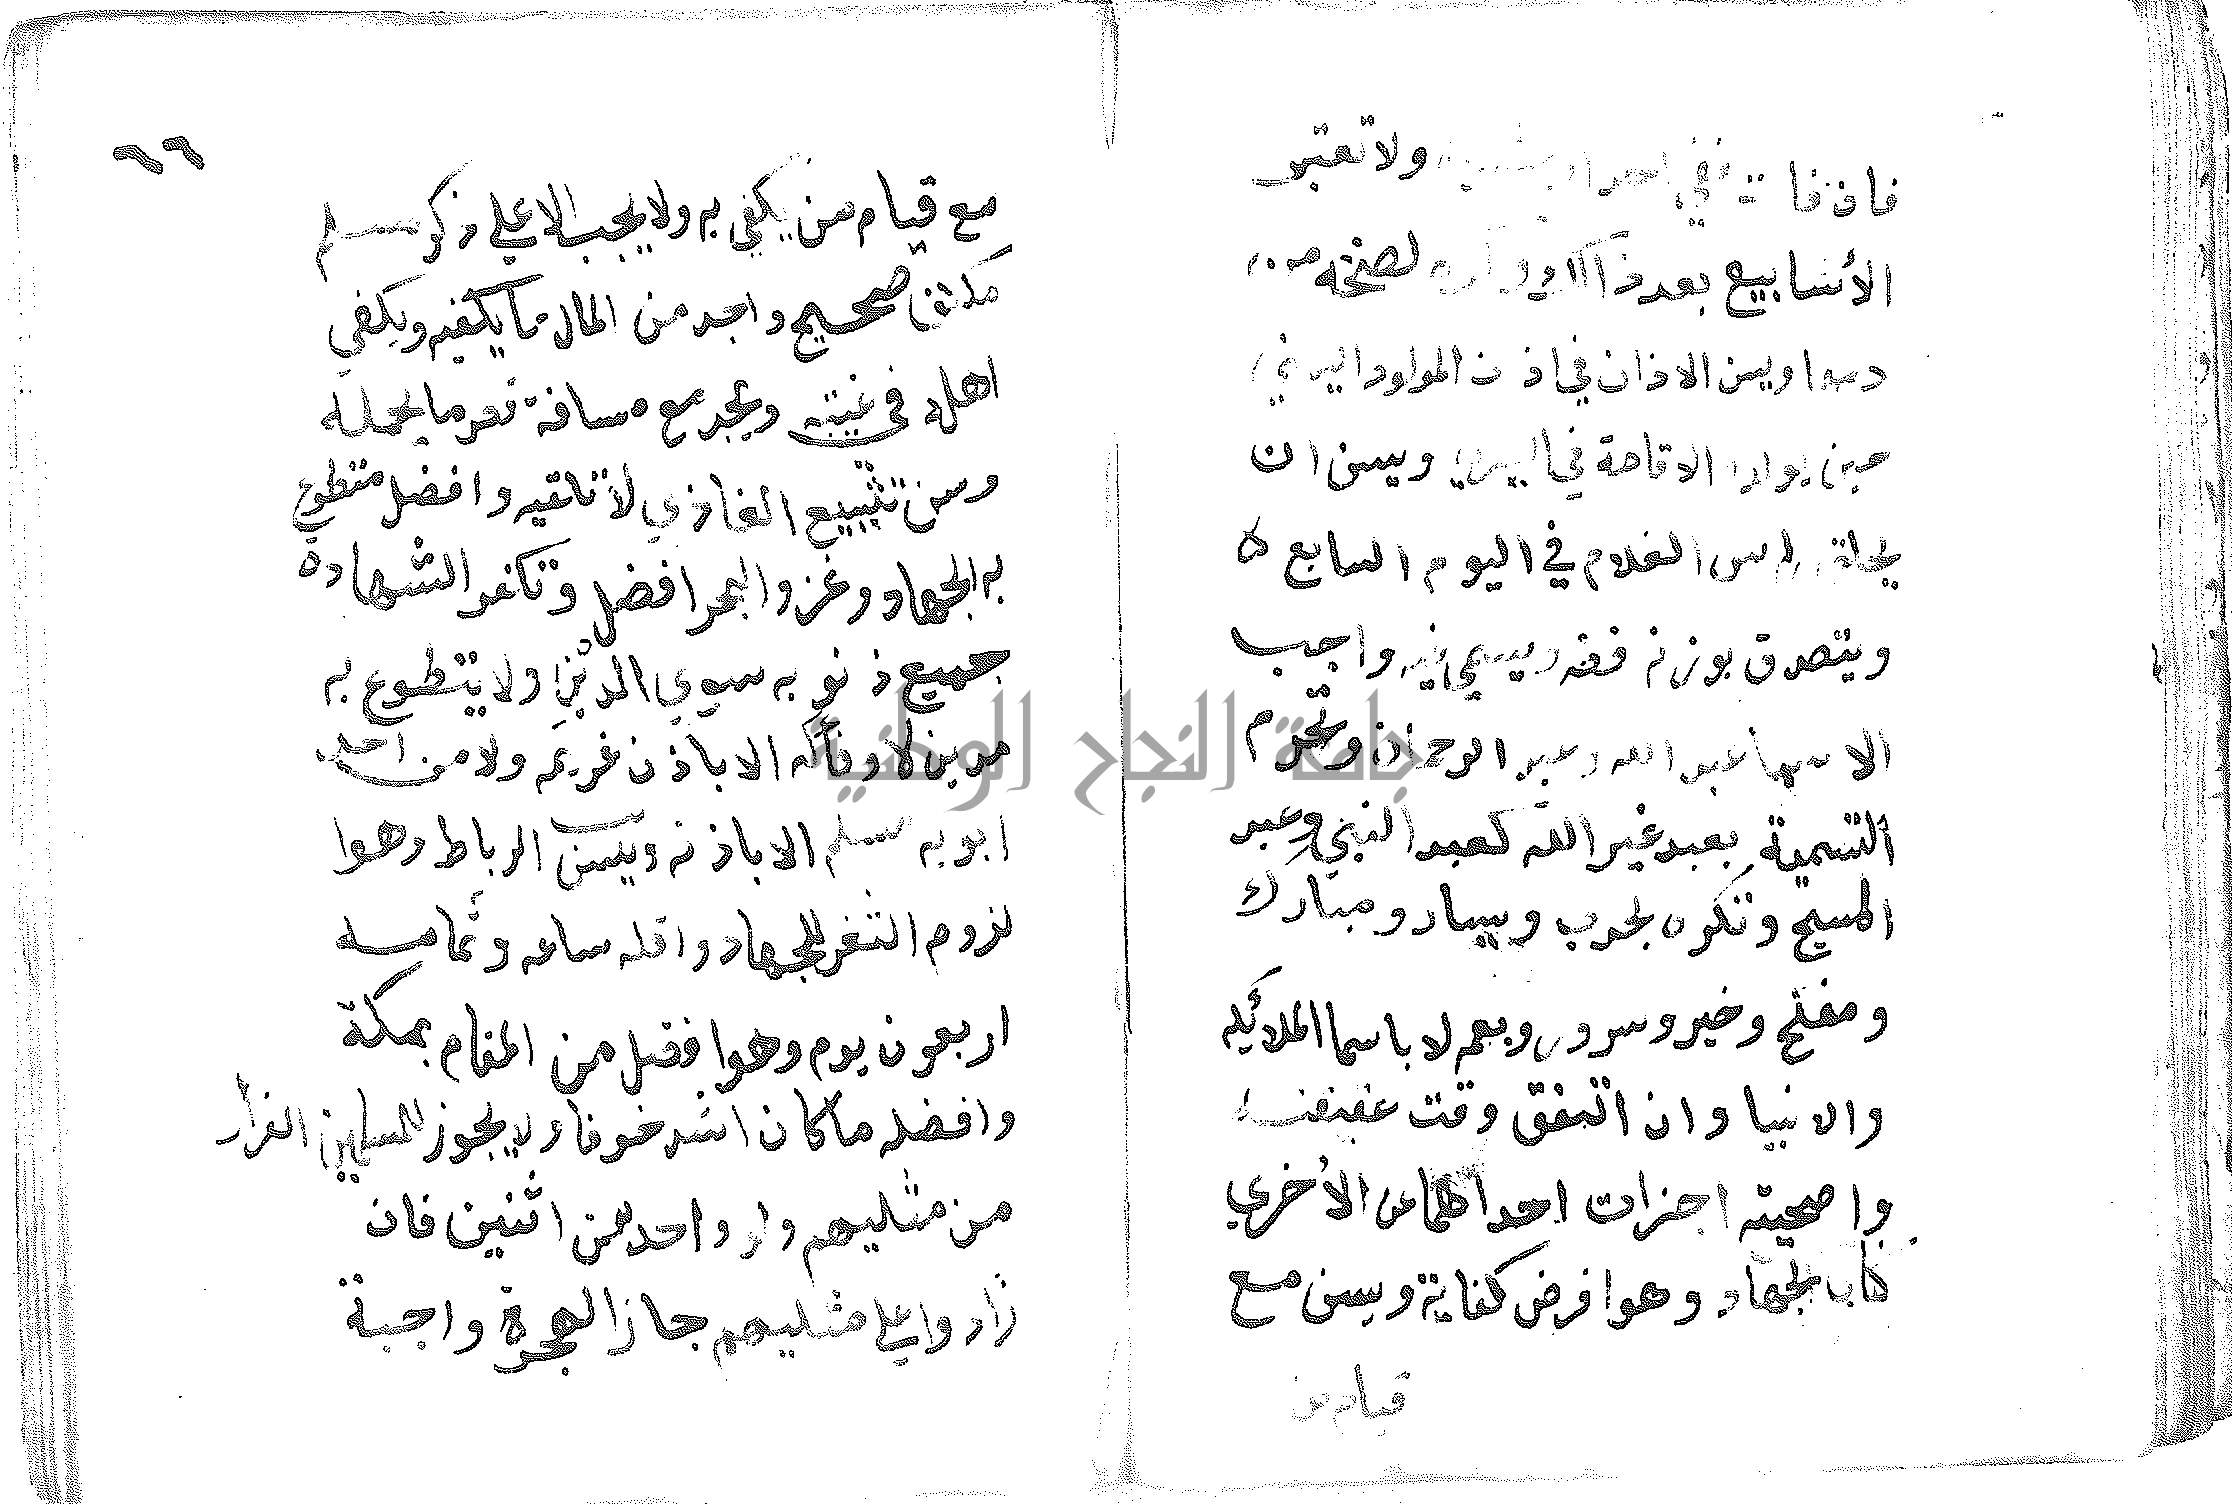 فان فات ففي احد وعشرين ولا تعتبر
الأسابيع بعد ذالك
ويسن الاذان في اذن المولود اليمني
حين يولد والاقامة في اليسري ويسن ان
يحلق راس الغلام في اليوم السابع ٥
ويتصدق بوزنه فضه ويسمي فيه واجب
الاسما عبد الله وعبد الرحمان وتحرم
التسمية بعبد غير الله كعبد النبي وعبد
المسيح وتكره بحرب ويسار ومبارك
ومفلح وخير وسرور لا باسما الملائكه
والانبيا وان اتفق وقت عقيقه
واضحيته اجزات احداهما عن الأخري
كتاب الجهاد وهوا فرض كفاية ويسن مع
قيام من
٦٦
مع قيام من يكفي به ولا يجب الا علي ذكر مسلم
مكلف صحيح واجد من المال ما يكفيه ويكفي
اهله في غيبته ويجد مع مسافة قصر ما يحمله
وسن تشييع الغازي لا تلقيه وافضل متطوع
به الجهاد وغزو البحر افضل وتكفر الشهاده
جميع ذنوبه سوي الدين ولا يتطوع به
مدين لا وفا له الا باذن غريمه ولا من احد
ابويه مسلم الا باذنه ويسن الرباط وهوا
لزوم الثغر للجهاد واقله ساعه وتمامه
اربعون يوم وهوا افضل من المقام بمكة
وافضله ما كان اشد خوفا ولا يجوز للمسلمين الفرار
من مثليهم ولو واحد من اثنين فان
زادوا علي مثليهم جاز الهجرة واجبة
جامعة النجاح الوطنية